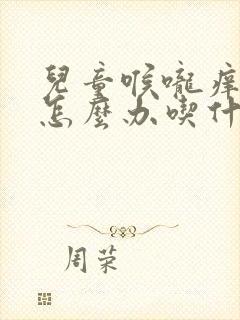 兒童喉嚨癢
怎麼办喫什
周荣